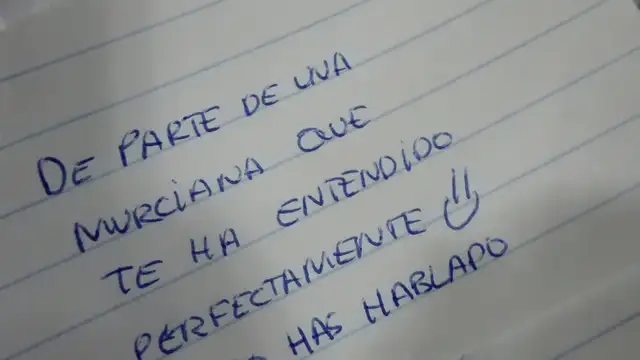 DE PARTE DE UNA
MURCIANA QUE
TE HA ENTENDIDO
PERFECTAMENTE
HAS HABLADO